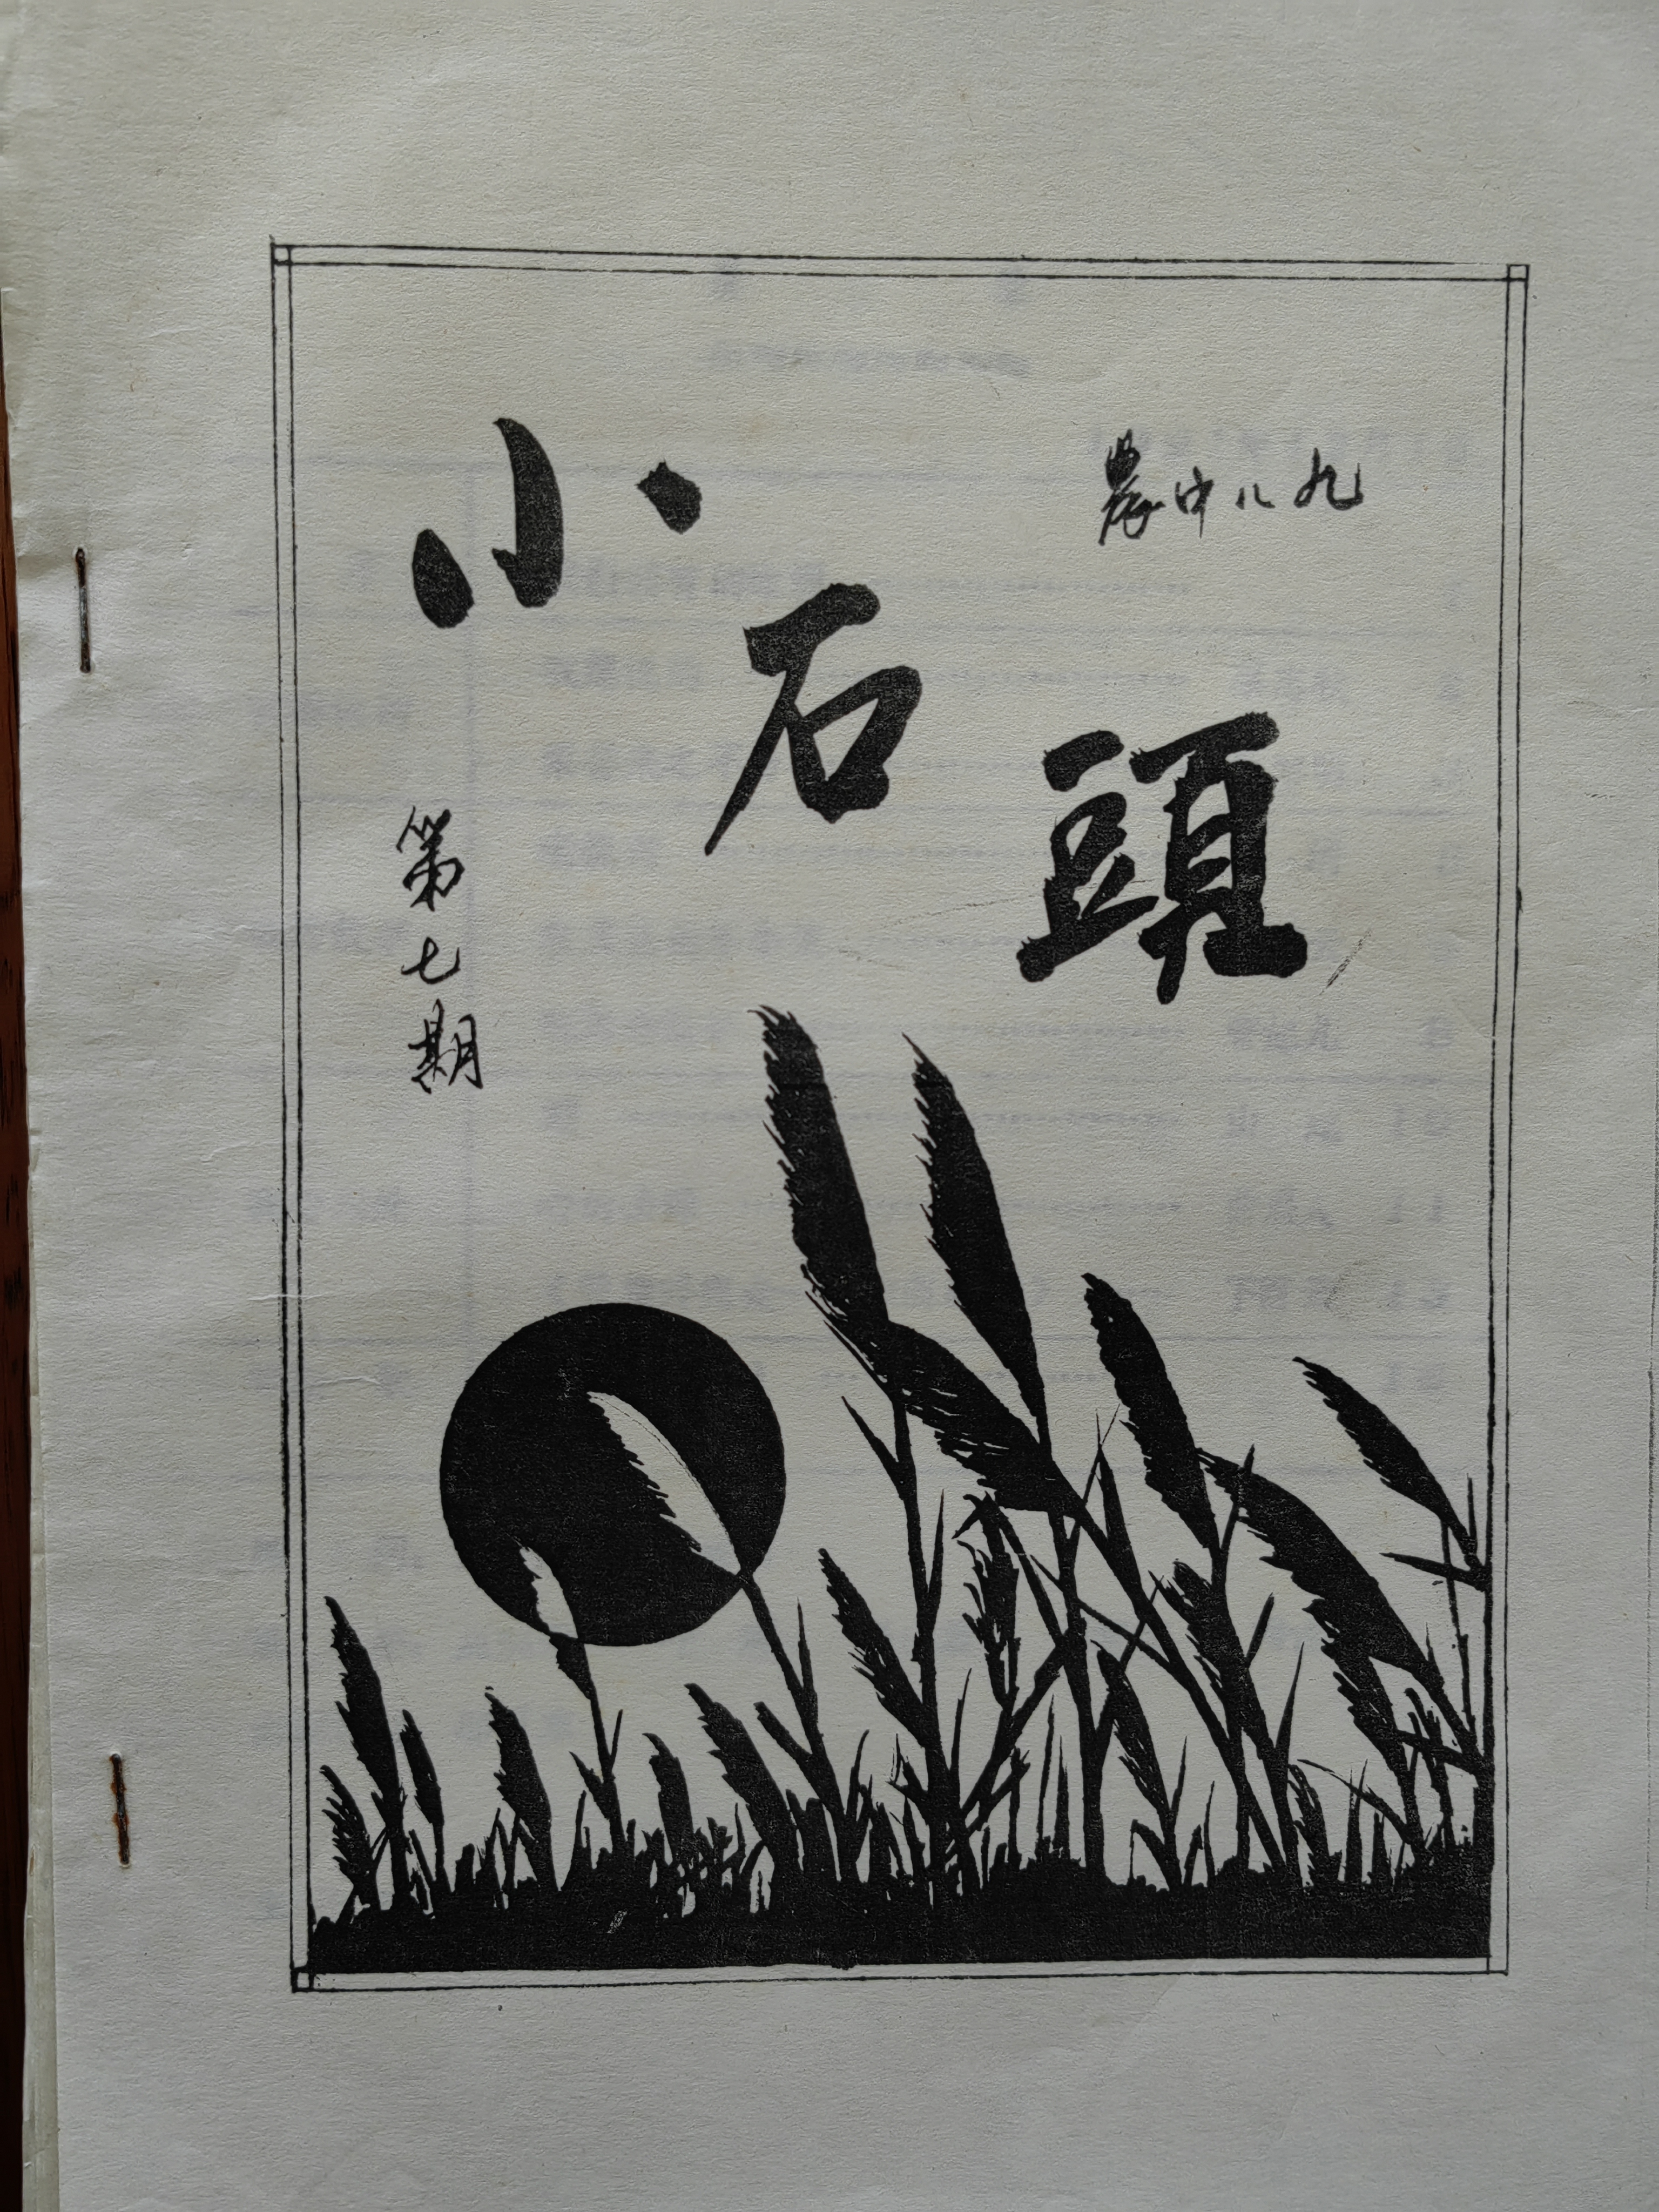 小石頭
農中八九
第七期